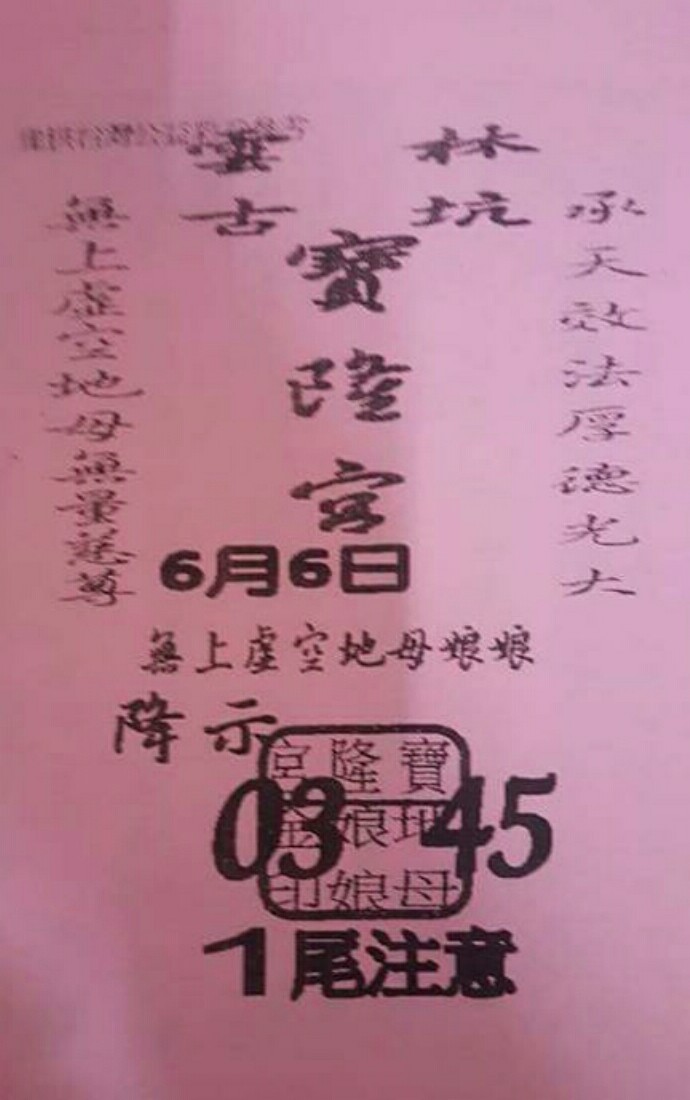 僅供台灣公益
雲林
古坑
承天效法厚德光大
寶隆宮
無上虛空地母無量慈尊
6月6日
無上虛空地母娘娘
降示
寶地母
隆娘娘
宮金印
03 45
1尾注意